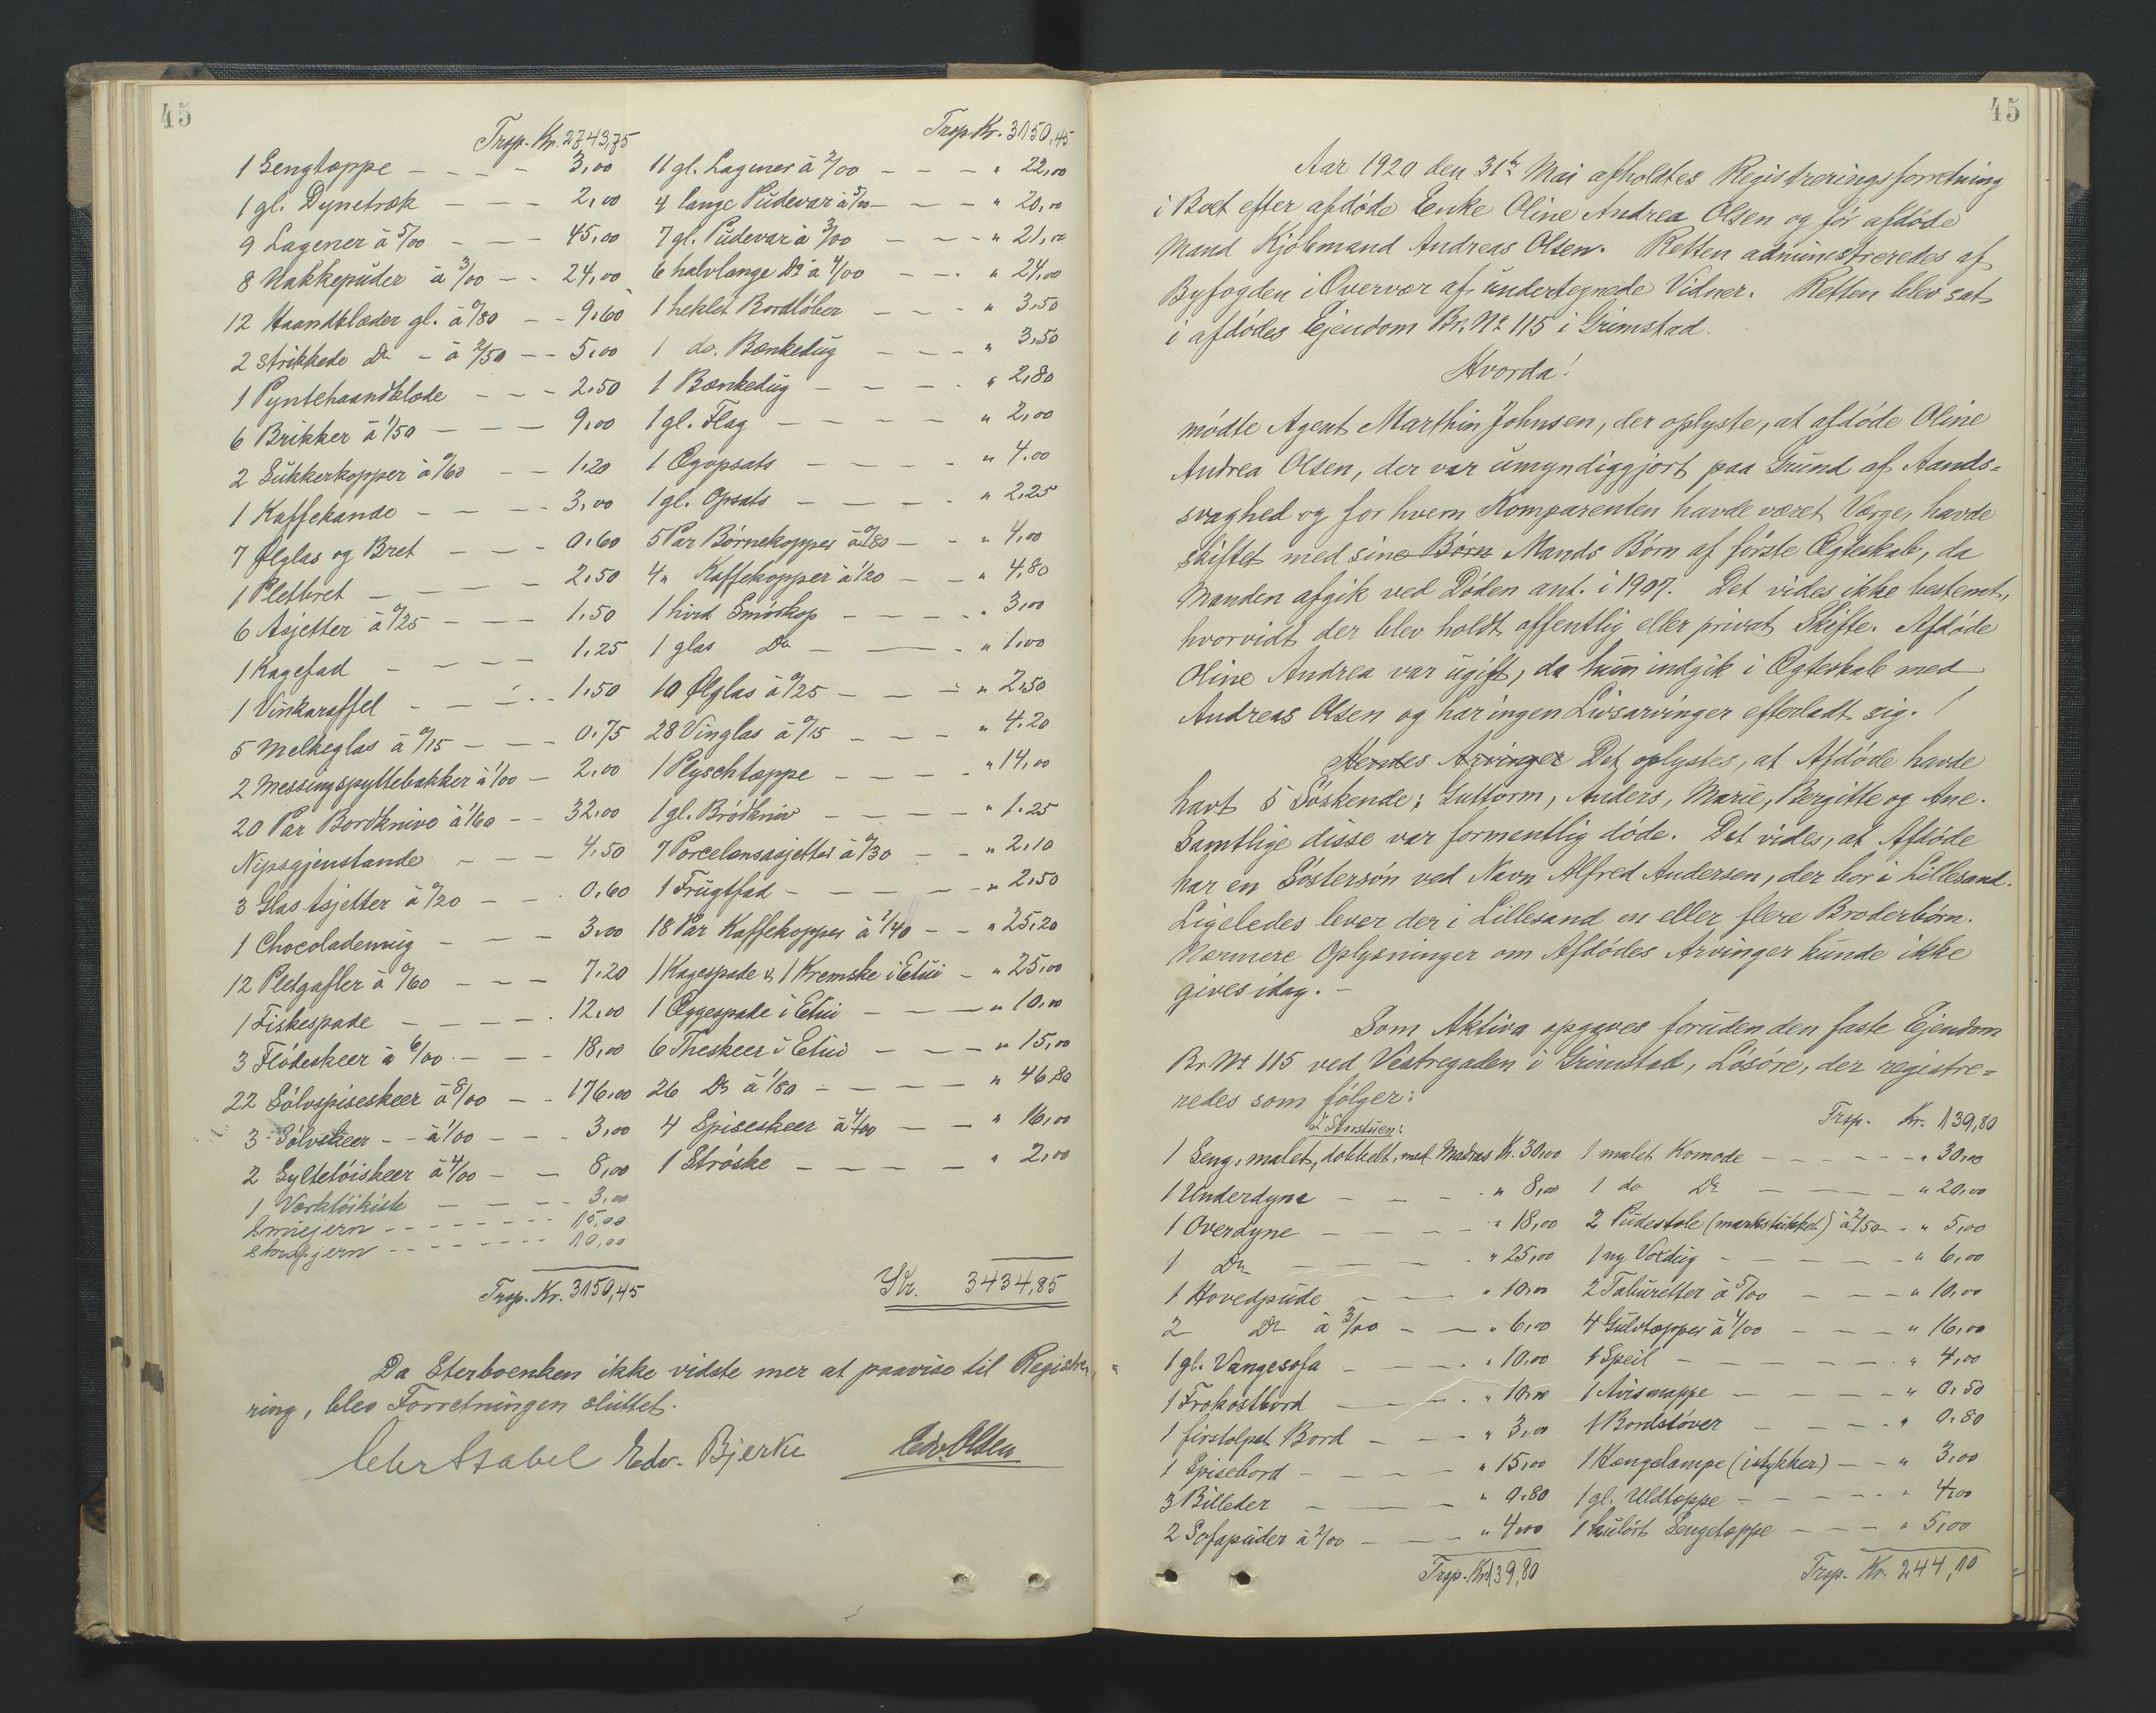 45
Trsp. Kr. 2743,75
1 Sengtæppe - - - - 3,00
1 gl. Dynetræk - - - 2,00
9 Lagener à 5/00 - - - 45,00
8 Nakkepuder à 3/00 - - 24,00
12 Haandklæder gl. à 0/80 - - 9,60
2 strikkede Do - à 2/50 - - 5,00
1 Pyntehaandklæde - - - 2,50
6 Brikker à 1/50 - - - 9,00
2 Sukkerkopper à 0/60 - - 1,20
1 Kaffekande - - - - 3,00
7 Ølglas og Bret - - - 0,60
1 Pletbret - - - - 2,50
6 Asjetter à 0/25 - - - 1,50
1 Kagefad - - - - 1,25
1 Vinkaraffel - - - - 1,50
5 Melkeglas à 0/15 - - - 0,75
2 Messingspyttebakker à 1/00 - 2,00
20 Par Bordknive à 1/60 - - 32,00
Nipsgjenstande - - - 4,50
3 Glas Asjetter à 0/20 - - 0,60
1 Chocolademug - - - 3,00
12 Pletgafler à 0/60 - - - 7,20
1 Fiskespade - - - - 12,00
3 Flødeskeer à 6/00 - - - 18,00
22 Sølvspiseskeer à 8/00 - - 176,00
3 Sølvskeer - - à 1/00 - - - 3,00
2 Syltetøiskeer à 4/00 - - 8,00
1 Værktøikiste - - - - 3,00
Smiejern - - - - - - - 15,00
Skrapjern - - - - - - - 10,00
Trsp. Kr. 3150,45
Trsp. Kr. 3150,45
11 gl. Lagener à 2/00 - - - " 22,00
4 lange Pudevar à 5/00 - - - " 20,00
7 gl. Pudevar à 3/00 - - - " 21,00
6 halvlange Do à 4/00 - - - " 24,00
1 heklet Bordløber - - - " 3,50
1 do. Bænkedug - - - " 3,50
1 Bænkedug - - - - " 2,80
1 gl. Flag - - - - " 2,00
1 Ægopsats - - - - " 4,00
1 gl. Opsats - - - - " 2,25
5 Par Børnekopper à 0/80 - - " 4,00
4 " Kaffekopper à 1/20 - - " 4,80
1 hvid Smørkop - - - - " 3,00
1 glas Do - - - - " 1,00
10 Ølglas à 0/25 - - - " 2,50
28 Vinglas à 0/15 - - - " 4,20
1 Plyschtæppe - - - - " 14,00
1 gl. Brødkniv - - - - " 1,25
7 Porcelænsasjetter à 0/30 - - " 2,10
1 Frugtfad - - - - - " 2,50
18 Par Kaffekopper à 1/40 - - " 25,20
1 Kagespade & 1 Kremske i Etui - " 25,00
1 Æggespade i Etui - - - " 10,00
6 Theskeer i Etui - - - " 15,00
26 Do à 1/80 - - - - " 46,80
4 Spiseskeer à 4/00 - - " 16,00
1 Strøske - - - - - " 2,00
Kr. 3434,85
Da Sterboenken ikke vidste mer at paavise til Registre-
ring, blev Forretningen sluttet.
Edv. Bjerke
Edv Olsen
45
Aar 1920 den 31te Mai afholdtes Registreringsforretning
i Boet efter afdøde Enke Oline Andrea Olsen og før afdøde
Mand Kjøbmand Andreas Olsen. Retten administreredes af
Byfogden i Overvær af undertegnede Vidner. Retten blev sat
i afdødes Ejendom Br. No 115 i Grimstad.
Hvorda!
mødte Agent Marthin Johnsen, der oplyste, at afdøde Oline
Andrea Olsen, der var umyndiggjort paa Grund af Aands=
svaghed og for hvem Komparenten havde været Værge, havde
skiftet med sine Børn Mands Børn af første Ægteskab, da
Manden afgik ved Døden ant. i 1907. Det vides ikke bestemt,
hvorvidt der blev holdt offentlig eller privat Skifte. Afdøde
Oline Andrea var ugift, da hun indgik i Ægteskab med
Andreas Olsen og har ingen Livsarvinger efterladt sig. /
Hendes Arvinger Det oplystes, at Afdøde havde
havt 5 Søskende: Guttorm, Anders, Marie, Bergitte og Ane.
Samtlige disse var formentlig døde. Det vides, at Afdøde
har en Søstersøn ved Navn Alfred Andersen, der bor i Lillesand.
Ligeledes lever der i Lillesand en eller flere Broderbørn.
Nærmere Oplysninger om Afdødes Arvinger kunde ikke
gives idag. -
Som Aktiva opgaves foruden den faste Ejendom
Br. No 115 ved Vestregaden i Grimstad, Løsøre, der registre=
redes som følger:
I Stuen:
1 Seng, malet, dobbelt, med Madras K. 30,00
1 Underdyne - - - - " 8,00
1 Overdyne - - - - " 18,00
1 Do - - - - " 25,00
1 Hovedpude - - - " 10,00
2 Do à 3/00 - - " 6,00
1 gl. Vangesofa - - - " 10,00
1 Frokostbord - - - " 10,00
1 firstolpet Bord - - - " 3,00
1 Spisebord - - - - " 15,00
3 Billeder - - - - " 0,80
2 Sofapuder à 2/00 - - - " 4,00
Trsp. Kr. 139,80
Trsp. Kr. 139,80
1 malet Komode - - - - - " 30,00
1 do Do - - - - " 20,00
2 Pudestole (markstukket) à 2/50 - " 5,00
1 ny Voxdug - - - - - " 6,00
2 Taburetter à 5/00 - - - " 10,00
4 Gulvtæpper à 4/00 - - - " 16,00
1 Speil - - - - - " 4,00
1 Avismappe - - - - " 0,50
1 Bordstøver - - - - " 0,80
1 Hængelampe (istykker) - - " 3,00
1 gl. Uldtæppe - - - - " 4,00
1 kulørt Sengetæppe - - - " 5,00
Trsp. Kr. 244,10